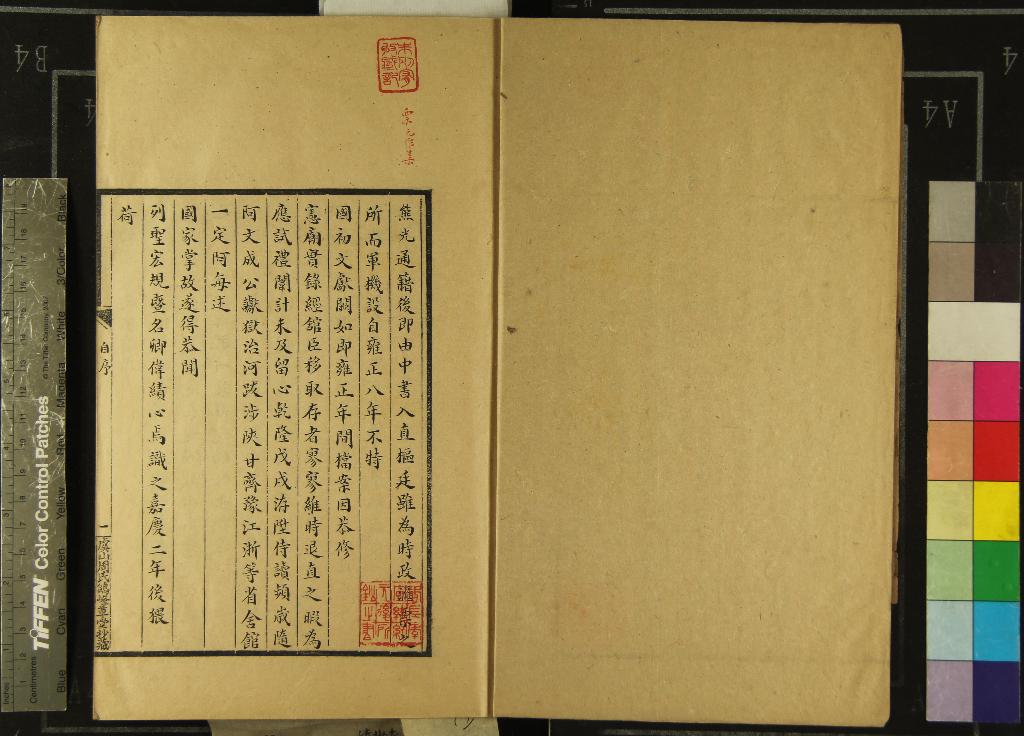 熊光通籍後即由中書入直樞廷雖為時政
所而軍機設自雍正八年不特
國初文獻闕如即雍正年間檔案因恭修
憲廟實錄經館臣移取存者寥寥維時退直之暇為
應試禮闈計未及留心乾隆戊戌洊陞侍讀頻歲隨
阿文成公讞獄治河跋涉陝甘齊豫江浙等省舍館
一定阿每述
國家掌故遂得恭聞
列聖宏規暨名卿偉績心焉識之嘉慶二年後猥
荷
自序
一
虞山周氏鴿峰草堂抄藏
B4
A4
4
TIFFEN Color Control Patches
© The Tiffen Company, 2007
Inches
Centimetres
Blue
Cyan
Green
Yellow
Red
Magenta
White
3/Color
Black